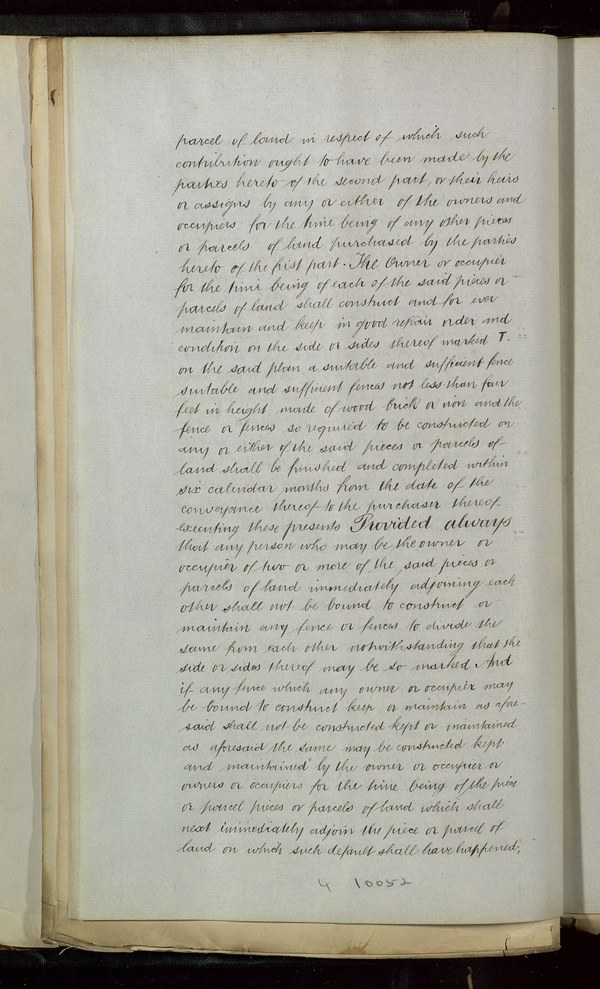 parcel of land in respect of which such
contribution ought to have been made by the
parties hereto of the second part, or their heirs
or assigns by any or either of the owners and
occupiers for the time being of any other pieces
or parcels of land purchased by the parties
hereto of the first part. The Owner or occupier
for the time being of each of the said pieces or
parcels of land shall construct and for ever
maintain and keep in good repair order and
condition on the side or sides thereof marked T.
on the said plan a suitable and sufficient fence
suitable and sufficient fences not less than four
feet in height made of wood brick or iron and the
fence or fences so required to be constructed on
any or either of the said pieces or parcels of
land shall be finished and completed within
six calendar months from the date of the
conveyance thereof to the purchaser thereof
executing these presents Provided always
that any person who may be the owner or
occupier of two or more of the said pieces or
parcels of land immediately adjoining each
other shall not be bound to construct or
maintain any fence or fences to divide the
same from each other notwithstanding that the
side or sides thereof may be so marked And
if any fence which any owner or occupier may
be bound to construct keep or maintain as afore-
said shall not be constructed kept or maintained
as aforesaid the same may be constructed kept
and maintained by the owner or occupier or
owners or occupiers for the time being of the piece
or parcel pieces or parcels of land which shall
next immediately adjoin the piece or parcel of
land on which such default shall have happened,
10052